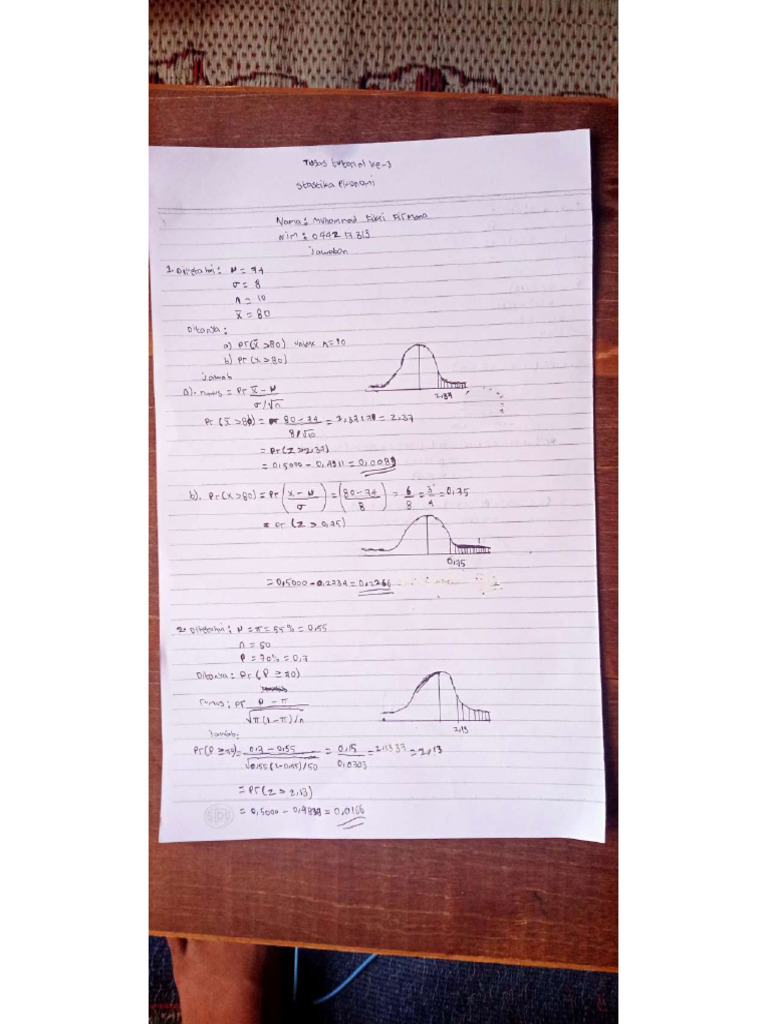 Tugas tutorial ke-3
Stastika Ekonomi
Nama : Muhammad Fikri Firmana
Nim : 0442
Jawaban
1. Diketahui : μ = 74
σ = 8
n = 10
x̄ = 80
Ditanya :
a) Pr(x̄ > 80) untuk n = 10
b) Pr (x > 80)
Jawab
a). rumus = Pr x̄ - μ / σ/√n
2,37
Pr (x̄ > 80) = 80 - 74 / 8/√10 = 2,37170 = 2,37
= Pr(Z > 2,37)
= 0,5000 - 0,4911 = 0,0089
b). Pr(x > 80) = Pr (x - μ / σ) = (80 - 74 / 8) = 6/8 = 3/4 = 0,75
= Pr (Z > 0,75)
0,75
= 0,5000 - 0,2734 = 0,2266
2. Diketahui : μ = π = 55% = 0,55
n = 50
P = 70% = 0,7
Ditanya : Pr (P ≥ 70)
rumus : Pr P - π / √π(1 - π)/n
2,13
Jawab:
Pr(P ≥ 70) = 0,7 - 0,55 / √0,55(1-0,55)/50 = 0,15 / 0,0703 = 2,1337 = 2,13
= Pr(Z > 2,13)
= 0,5000 - 0,4834 = 0,0166
SIDU